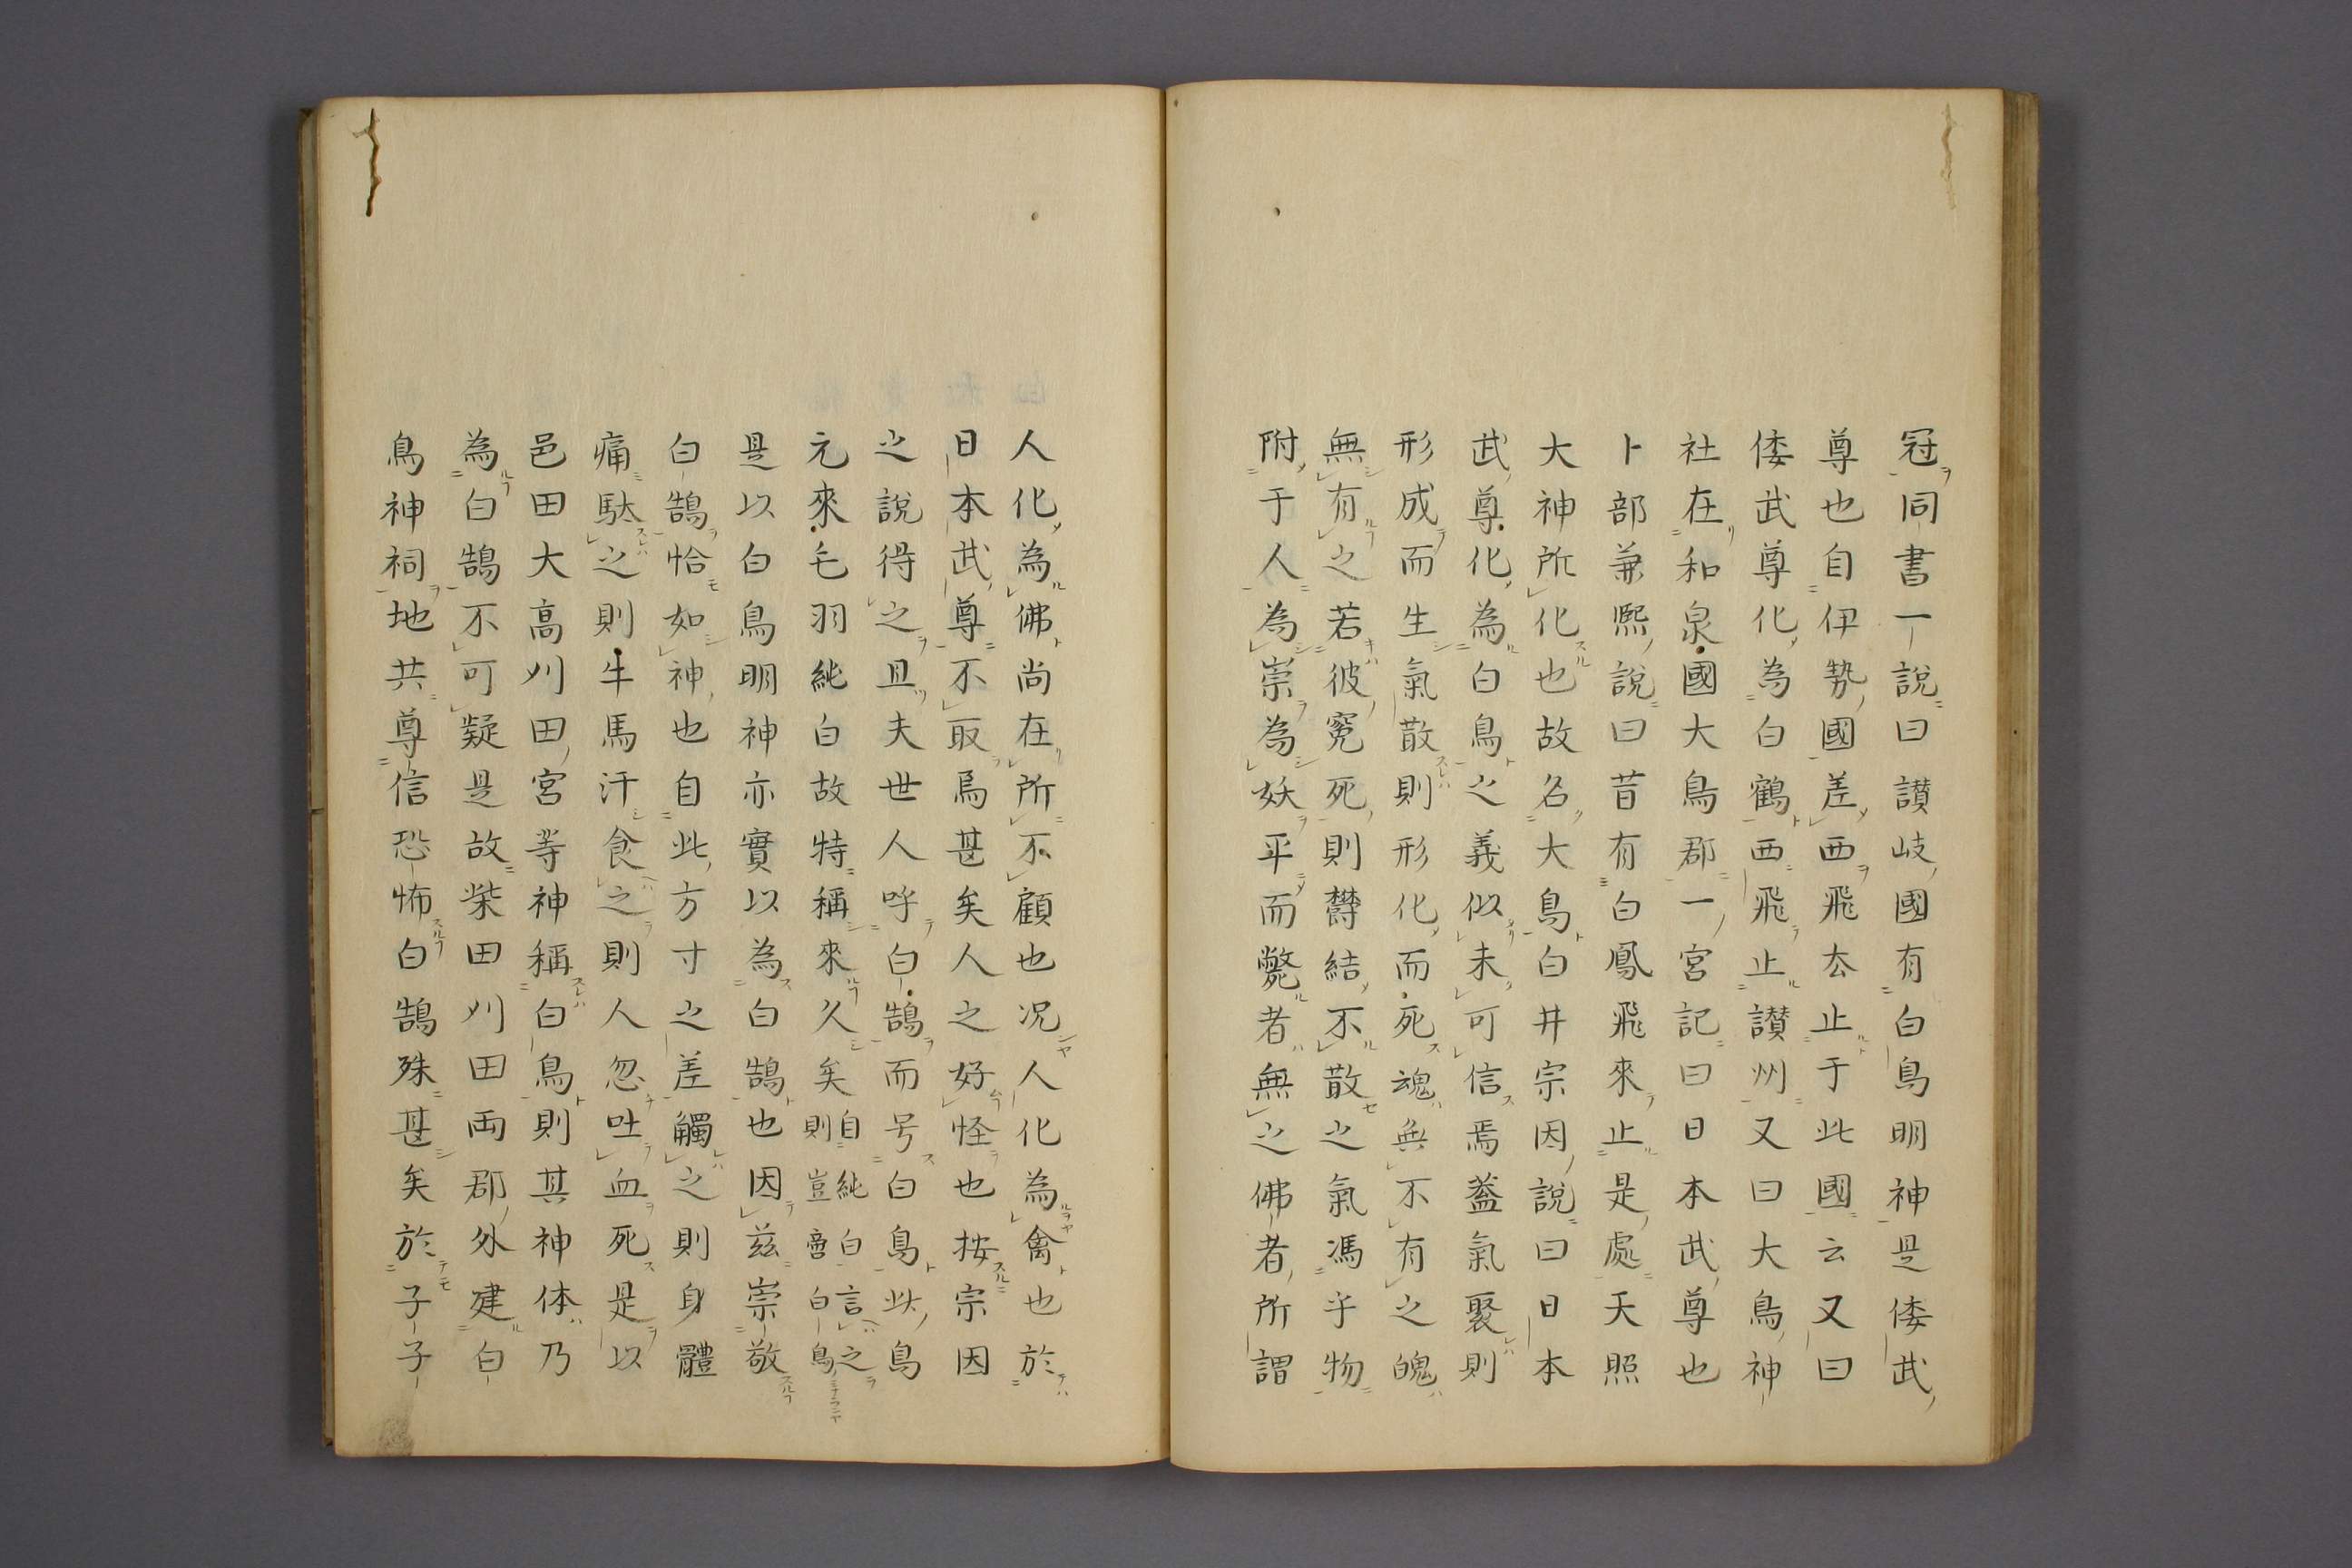 冠同書一説曰讃岐國有白鳥明神是倭武
尊也自伊勢國差西飛去止于此國云又曰
倭武尊化為白鶴西飛止讃州又曰大鳥神
社在和泉國大鳥郡一宮記曰日本武尊也
卜部兼熈説曰昔有白鳳飛來止是處天照
大神所化也故名大鳥白井宗因説曰日本
武尊化為白鳥之義似未可信焉蓋氣聚則
形成而生氣散則形化而死魂無不有之魄
無有之若彼寃死則欝結不散之氣馮乎物
附于人為祟為妖平而斃者無之佛者所謂
人化為佛尚在所不顧也况人化為禽也於
日本武尊不取焉甚矣人之好怪也按宗因
之説得之且夫世人呼白鵠而号白鳥此鳥
元來毛羽純白故特稱來久矣自純白言之
則豈啻白鳥
是以白鳥明神亦實以為白鵠也因茲崇敬
白鵠恰如神也自此方寸之差觸之則身體
痛駄之則牛馬汗食之則人忽吐血死是以
邑田大高刈田宮等神稱白鳥則其神体乃
為白鵠不可疑是故柴田刈田両郡外建白
鳥神祠地共尊信恐怖白鵠殊甚矣於子子